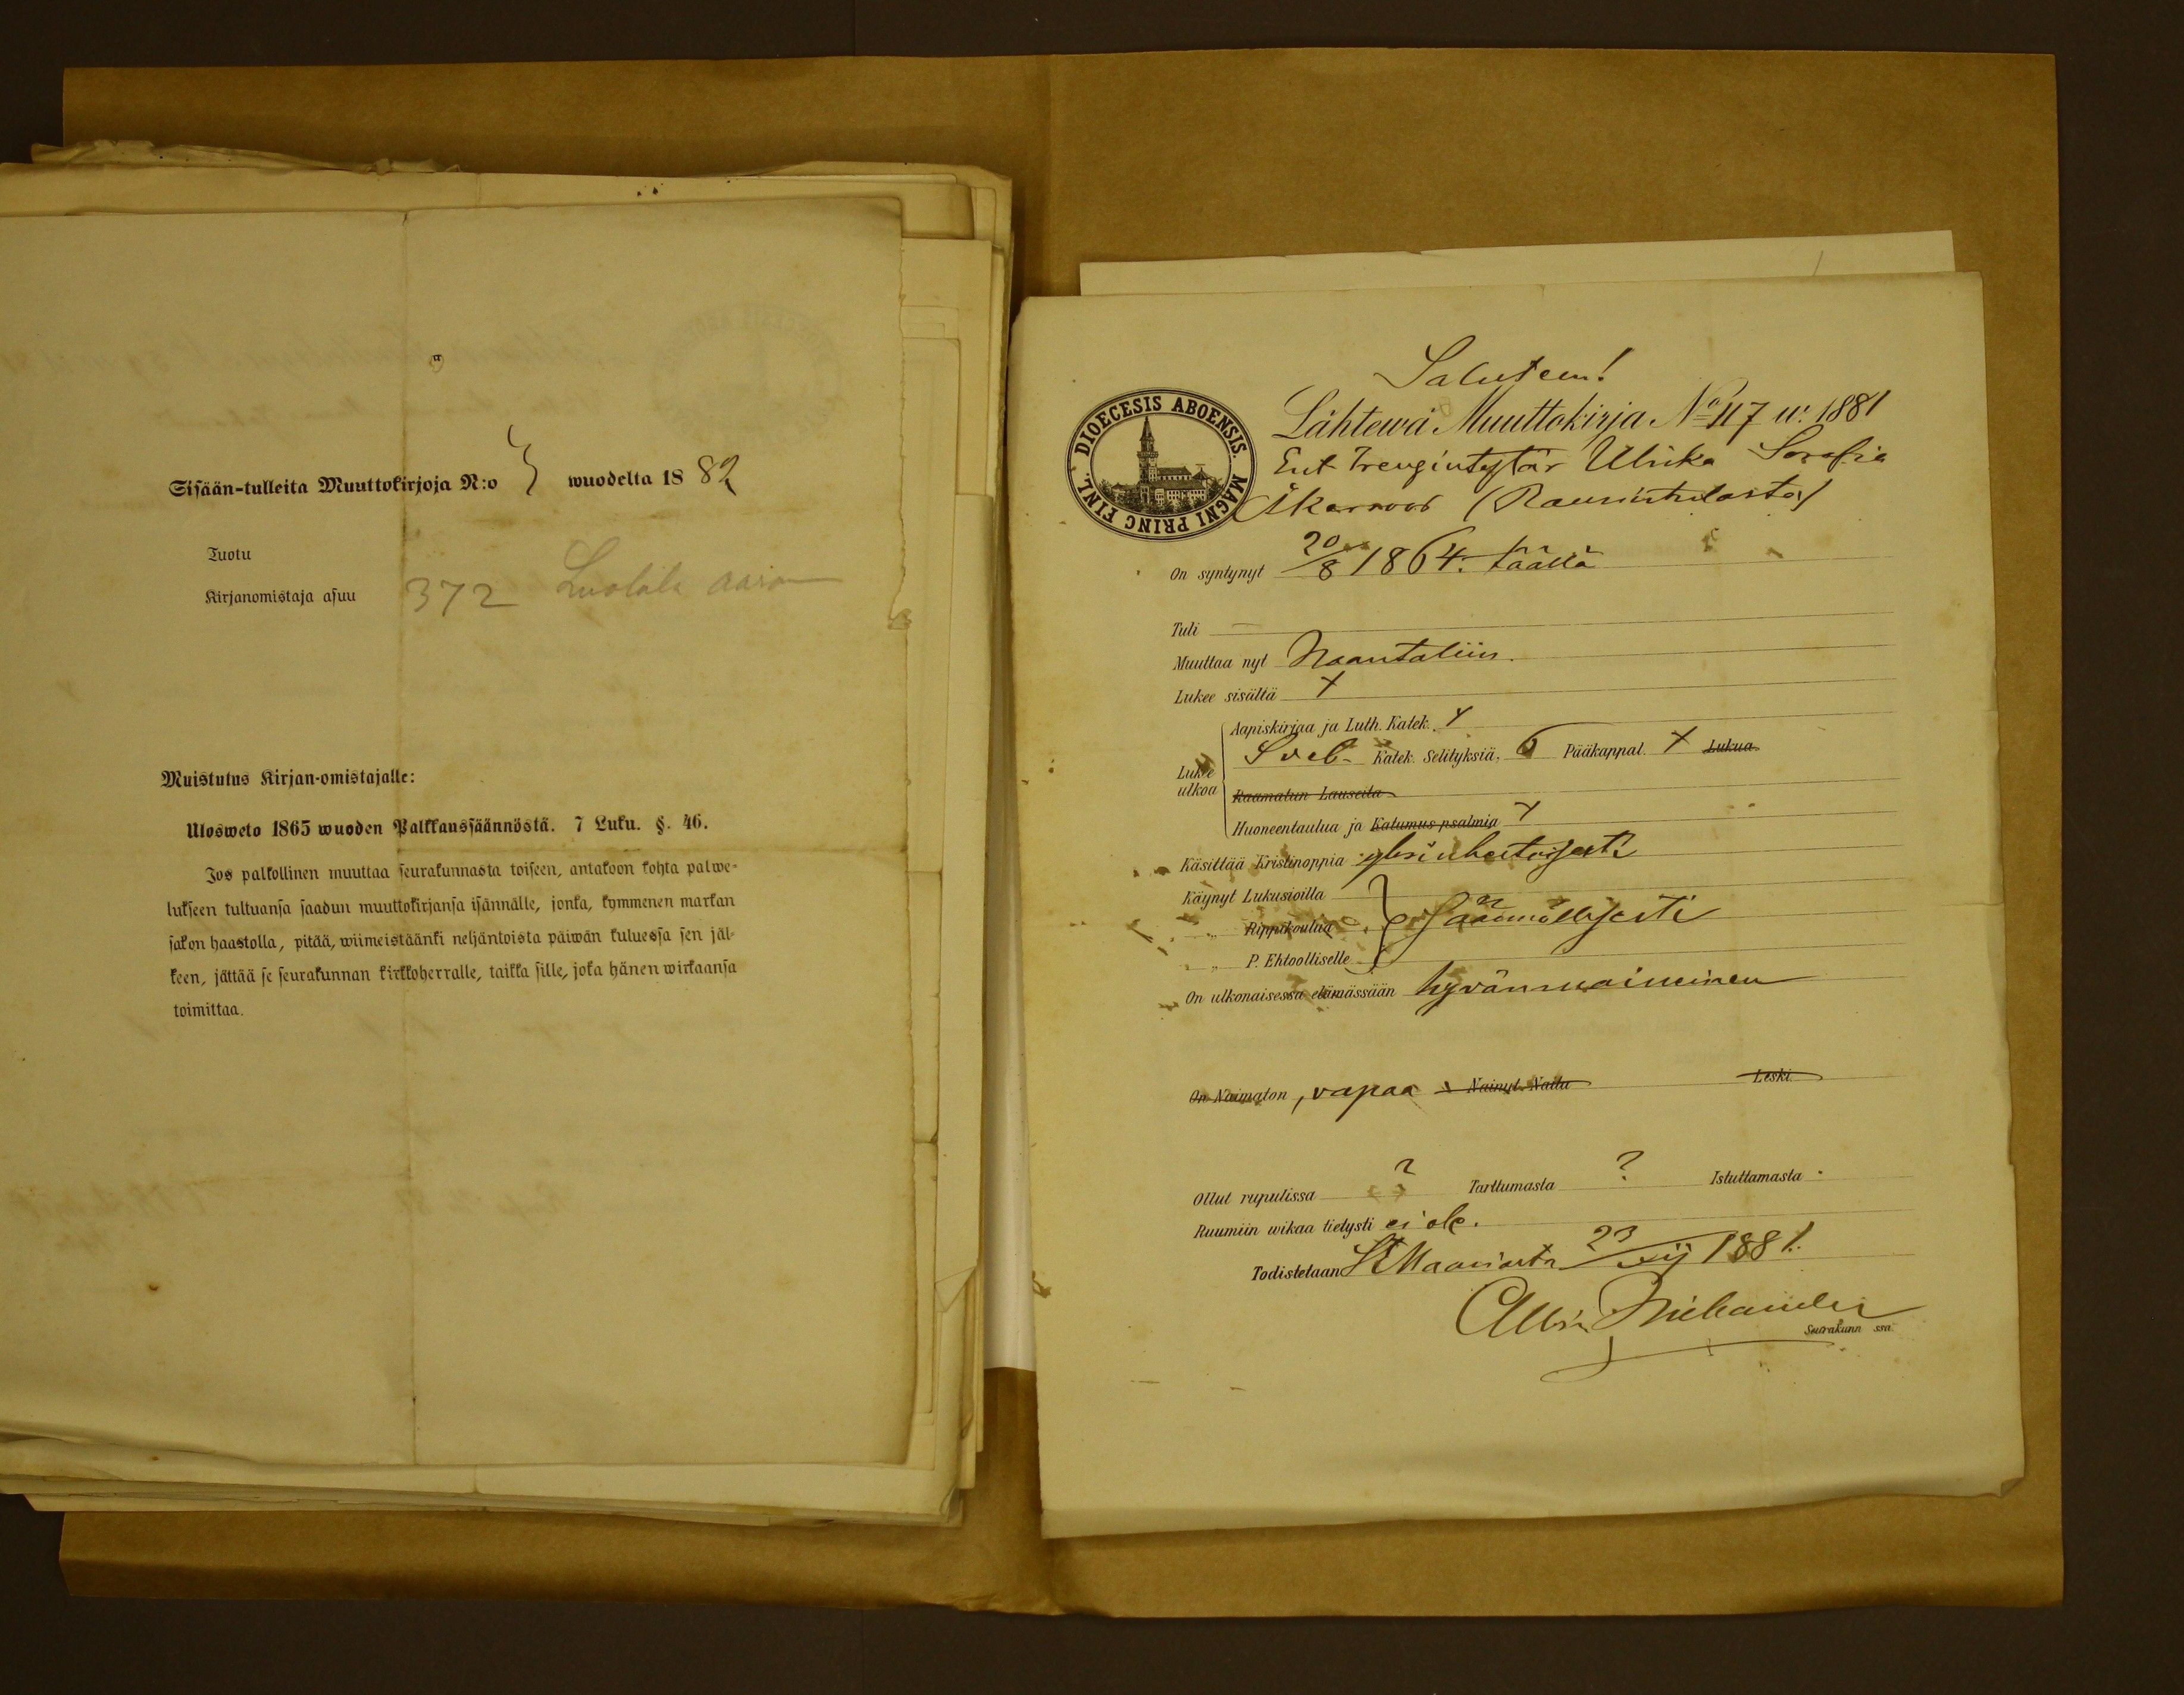 Sisään-tulleita Muuttokirjoja N:o 3 wuodelta 1882
Tuotu
Kirjanomistaja asuu 372 Luolala
Muistutus Kirjan-omistajalle:
Ulosweto 1865 wuoden Palkkaussäännöstä. 7 Luku. §. 46.
Jos palkollinen muuttaa seurakunnasta toiseen, antakoon kohta palwe-
lukseen tultuansa saadun muuttokirjansa isännälle, jonka, kymmenen markan
sakon haastolla, pitää, wiimeistäänki neljäntoista päiwän kuluessa sen jäl-
keen, jättää se seurakunnan kirkkoherralle, taikka sille, joka hänen wirkaansa
toimittaa.
Salutem!
DIOECESIS ABOENSIS. MAGNI PRINC FINL.
Lähtewä Muuttokirja No 117 w. 1881
Ent Trengintytär Ulrika Serafia
Åkerroos
On syntynyt 20/8 1864. täällä
Tuli —
Muuttaa nyt Naantaliin.
Lukee sisältä +
Lukee ulkoa
Aapiskirjaa ja Luth. Katek. +
Sveb. Katek. Selityksiä, 6 Pääkappal. + Lukua.
Raamatun Lauseita
Huoneentaulua ja Katumus psalmia +
Käsittää Kristinoppia yksinkertaisesti
Käynyt Lukusioilla
„ Rippikoulua säännöllisesti
„ P. Ehtoolliselle
On ulkonaisessa elämässään hyvänmaineinen
On Naimaton, vapaa Nainyt Naitu Leski
Ollut rupulissa ? Tarttumasta ? Istuttamasta -
Ruumiin wikaa tietysti ei ole.
Todistetaan St Maariasta 23/xij 1881.
Albin
Seurakunn ssa